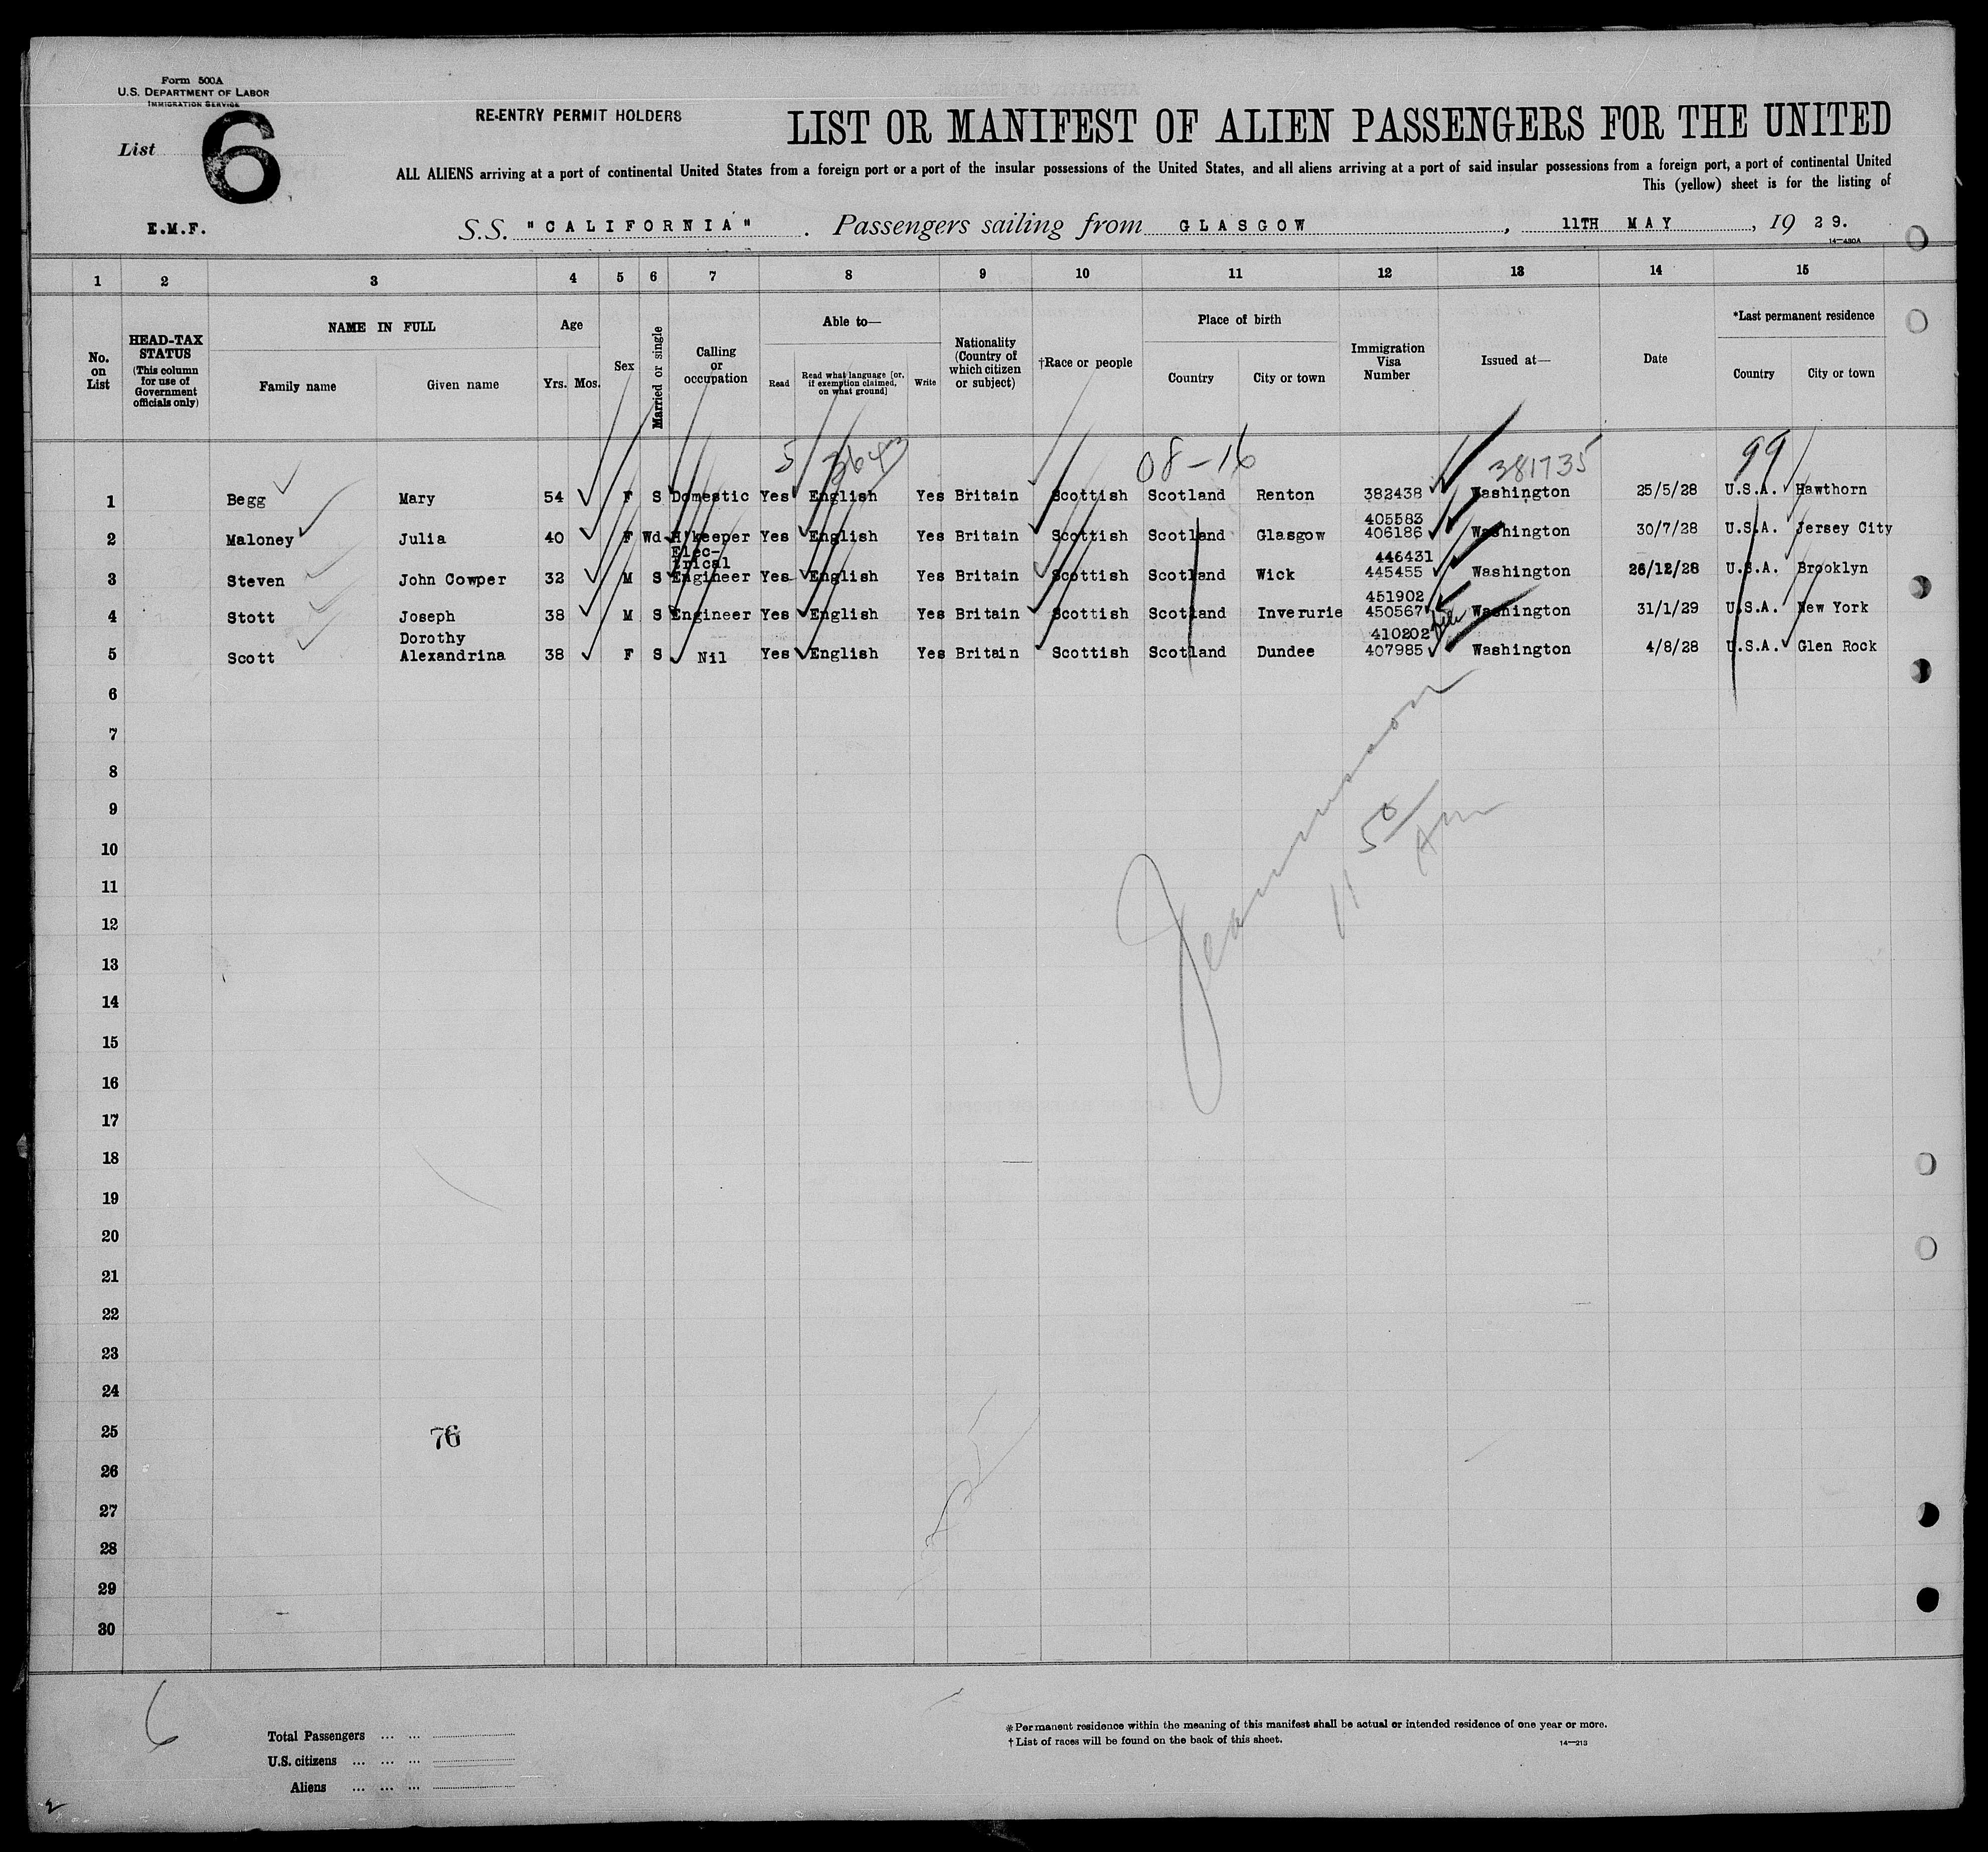 Form 500A
U.S. DEPARTMENT OF LABOR
IMMIGRATION SERVICE
List 6
RE-ENTRY PERMIT HOLDERS
LIST OR MANIFEST OF ALIEN PASSENGERS FOR THE UNITED
ALL ALIENS arriving at a port of continental United States from a foreign port or a port of the insular possessions of the United States, and all aliens arriving at a port of said insular possessions from a foreign port, a port of continental United
This (yellow) sheet is for the listing of
E.M.F.
S.S. "CALIFORNIA". Passengers sailing from GLASGOW, 11TH MAY, 19 29.
14—480A
1 2 3 4 5 6 7 8 9 10 11 12 13 14 15
No. on List
HEAD-TAX STATUS (This column for use of Government officials only)
NAME IN FULL
Family name Given name
Age
Yrs. Mos.
Sex
Married or single
Calling or occupation
Able to—
Read Read what language [or, if exemption claimed, on what ground] Write
Nationality (Country of which citizen or subject)
†Race or people
Place of birth
Country City or town
Immigration Visa Number
Issued at—
Date
*Last permanent residence
Country City or town
5 08-16 381735 99
1 Begg Mary 54 F S Domestic Yes English Yes Britain Scottish Scotland Renton 382438 Washington 25/5/28 U.S.A. Hawthorn
405583
2 Maloney Julia 40 F Wd H'keeper Yes English Yes Britain Scottish Scotland Glasgow 406186 Washington 30/7/28 U.S.A. Jersey City
Elec-
trical 446431
3 Steven John Cowper 32 M S Engineer Yes English Yes Britain Scottish Scotland Wick 445455 Washington 26/12/28 U.S.A. Brooklyn
451902
4 Stott Joseph 38 M S Engineer Yes English Yes Britain Scottish Scotland Inverurie 450567 Washington 31/1/29 U.S.A. New York
Dorothy 410202
5 Scott Alexandrina 38 F S Nil Yes English Yes Britain Scottish Scotland Dundee 407985 Washington 4/8/28 U.S.A. Glen Rock
6
7
8
9
10
11 11 50 AM
12
13
14
15
16
17
18
19
20
21
22
23
24
25 76
26
27
28
29
30
6
Total Passengers ... ...
U.S. citizens ... ... ...
Aliens ... ... ...
*Permanent residence within the meaning of this manifest shall be actual or intended residence of one year or more.
†List of races will be found on the back of this sheet.
14—213
2